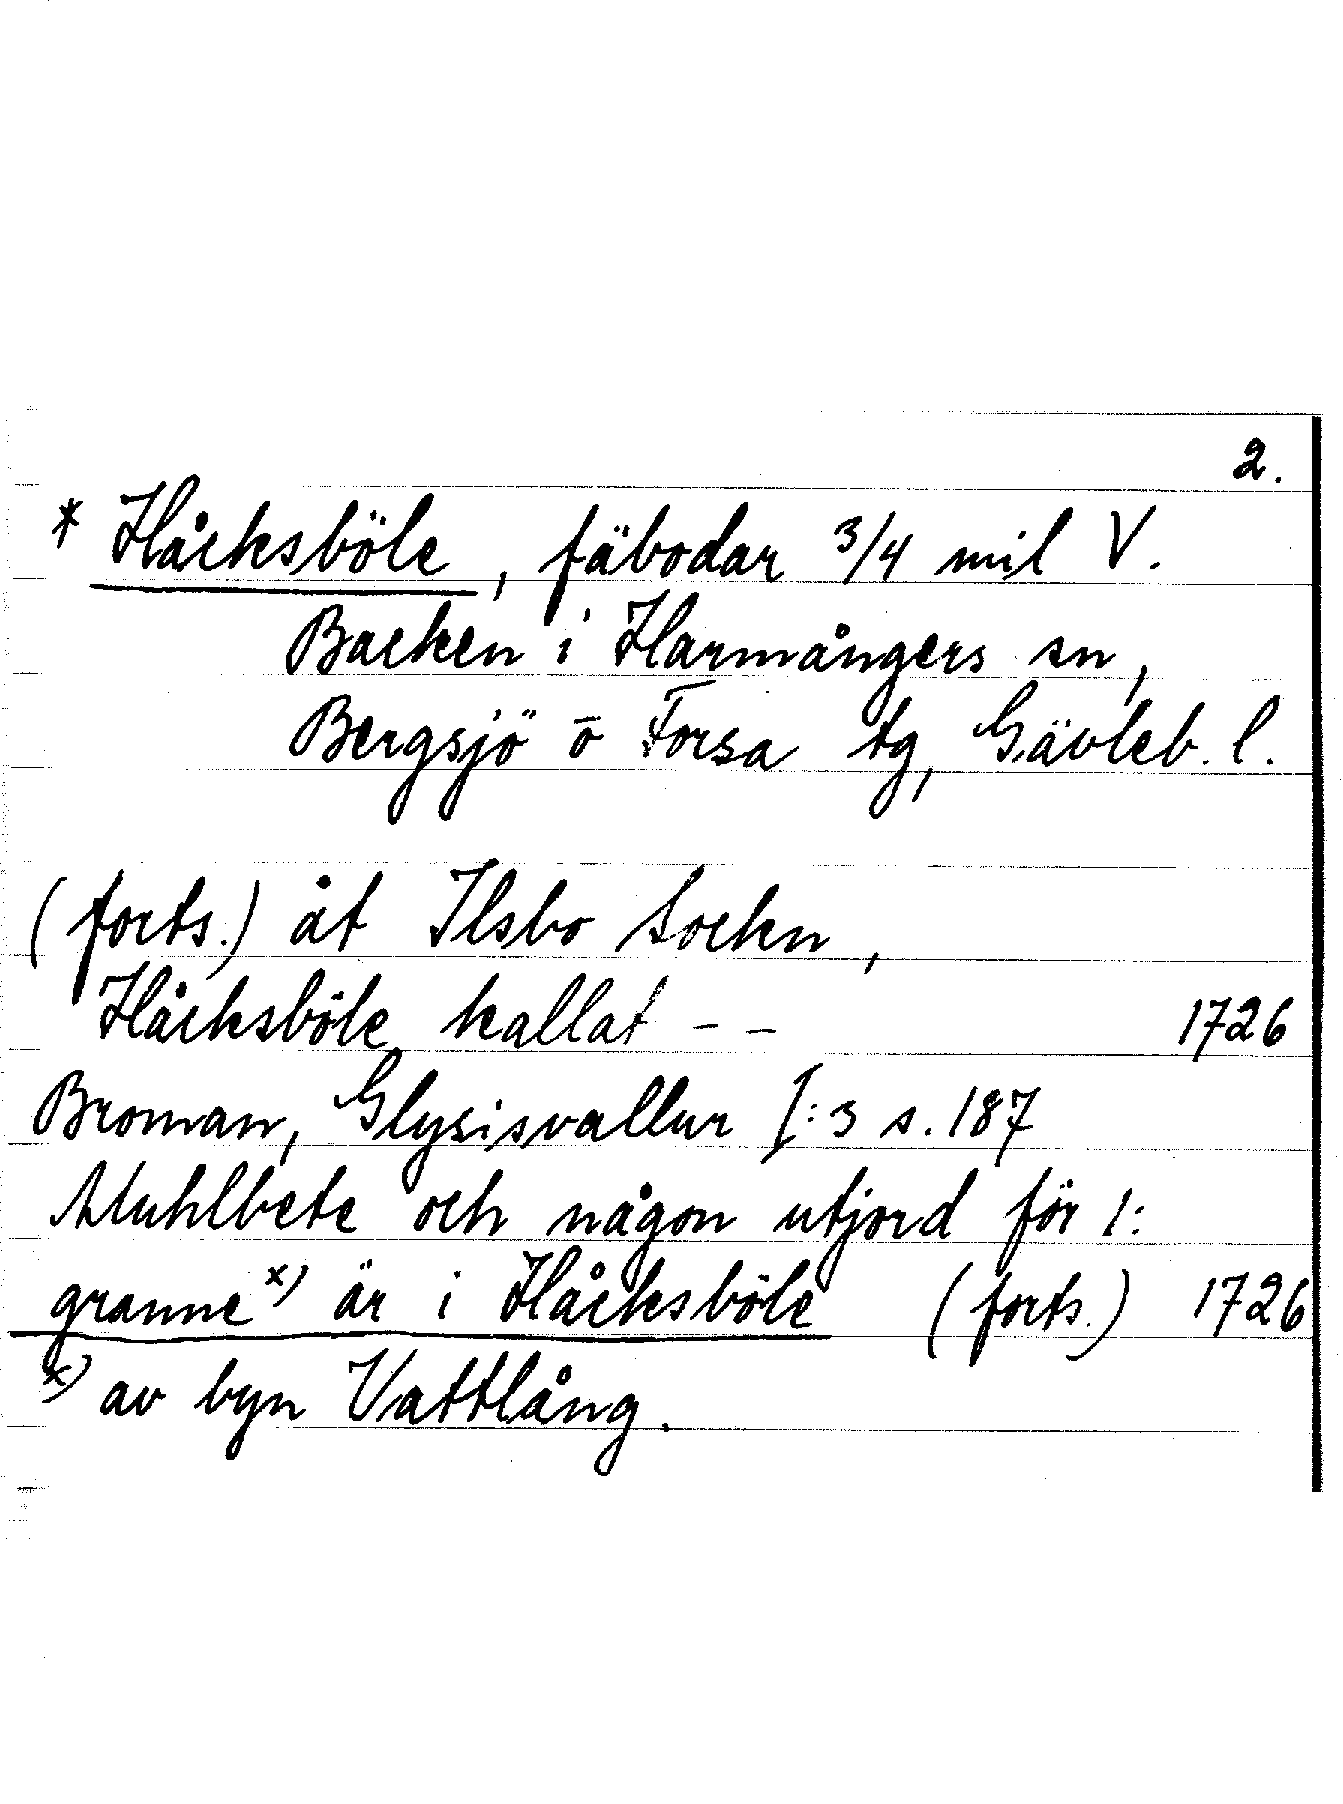 2.
* Håcksböle, fäbodar 3/4 mil V.
Backen i Harmångers sn,
Bergsjö o Forsa tg, Gävleb. l.
(forts.) åt Ilsbo Sockn,
Håcksböle kallat - - 1726
Broman, Glysisvallur I:3 s. 187
Muhlbete och någon utjord för 1:
granne x) är i Håcksböle (forts.) 1726
x) av byn Vattlång.